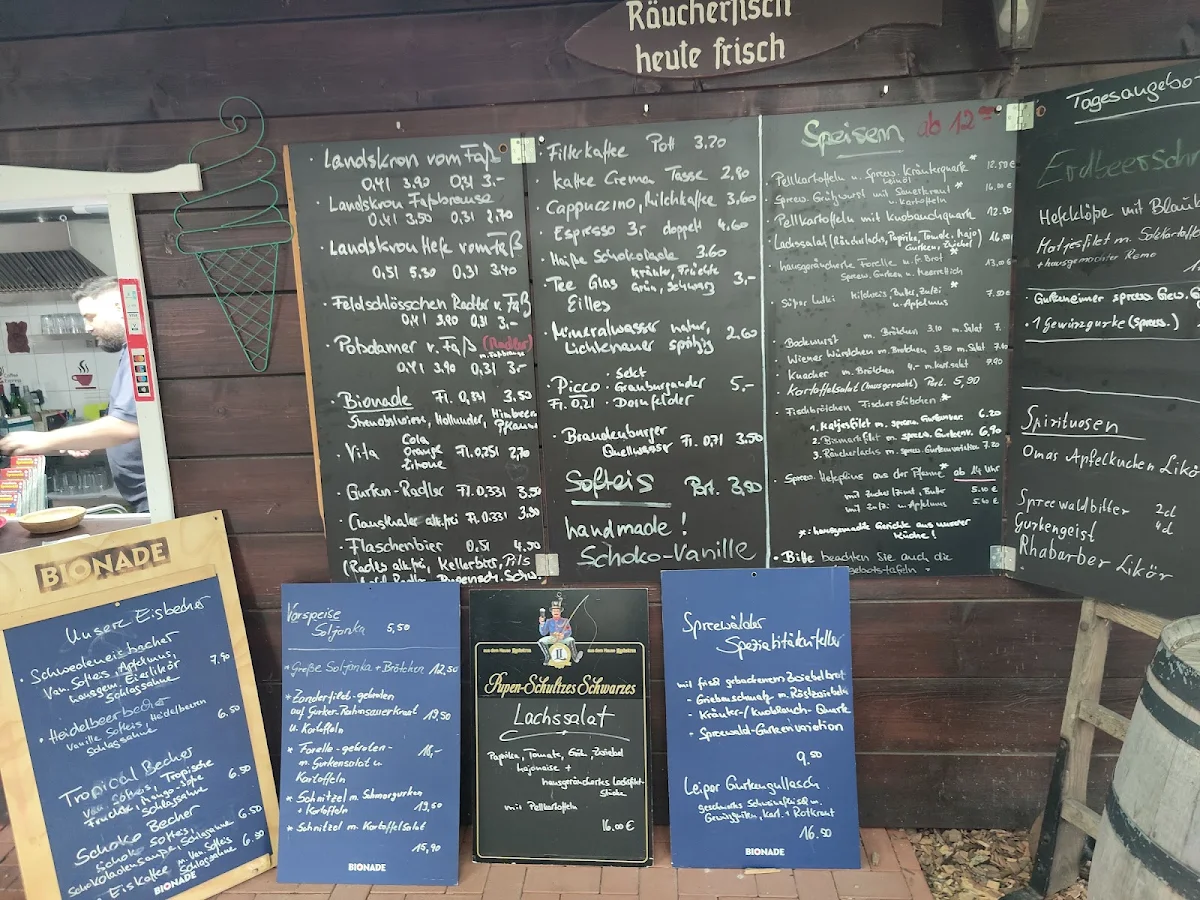 Räucherfisch
heute frisch
· Landskron vom Faß
0,4l 3.90 0,3l 3.-
· Landskron Faßbrause
0,4l 3.50 0,3l 2.70
· Landskron Hefe vom Faß
0,5l 5,30 0,3l 3.40
· Feldschlösschen Radler v. Faß
0,4l 3.90 0,3l 3.-
· Potsdamer v. Faß (Radler)
m. Faßbrause
0,4l 3.90 0,3l 3.-
· Bionade Fl. 0,33l 3.50
Streuobstwiese, Hollunder, Himbeer
· Vita Cola
Orange Fl. 0,25l 2,70
Zitrone
· Gurken-Radler Fl. 0,33l 3.50
· Clausthaler alk.frei Fl. 0.33l 3.90
· Flaschenbier 0,5l 4.50
(Radler alk.frei, Kellerbier, Pils
· Filterkaffee Pott 3.20
· Kaffee Crema Tasse 2,80
· Cappuccino, Milchkaffee 3.60
· Espresso 3,- doppelt 4.60
· Heiße Schokolade 3.60
· Tee Glas Kräuter, Früchte 3,-
Eilles Grün, Schwarz
· Mineralwasser natur, 2,60
Lichtenauer spritzig
· Picco · Sekt
Fl. 0,2l · Grauburgunder 5,-
· Dornfelder
· Brandenburger Fl. 0,7l 3,50
Quellwasser
Softeis Port. 3,90
handmade!
Schoko-Vanille
Speisen ab 12
· Pellkartoffeln m. Spreew. Kräuterquark * 12.50€
Leinöl
· Spreew. Grützwurst mit Sauerkraut * 16,00€
u. Kartoffeln
· Pellkartoffeln mit Knoblauchquark 12.50
· Lachssalat (Räucherlachs, Paprika, Tomate, Majo) 16,00
Gurken, Zwiebel
· hausgeräucherte Forelle u. fr. Brot * 13,00€
Spreew. Gurken u. Meerrettich
· Süßer Milchreis, Butter, Zucker * 7.50€
u. Apfelmus
· Bockwurst m. Brötchen 3.10 m. Salat
· Wiener Würstchen m. Brötchen 3,50 m. Salat
· Knacker m. Brötchen 4,- m. kart. salat
· Kartoffelsalat (hausgemacht) Port. 5,90
· Fischbrötchen *
1. Matjesfilet m. spreew. Gurkenvar. 6.20
2. Bismarkfilet m. spreew. Gurkenv. 6,90
3. Räucherlachs m. spreew. Gurkenvariation 7.20
· Spreew. Hefeplins aus der Pfanne * ab 14 Uhr
mit Zucker, Zimt, Butter 5.10€
mit Zu/Zi u. Apfelmus 5.60€
*: hausgemachte Gerichte aus unserer
Küche!
· Bitte beachten Sie auch die
Angebotstafeln
Tagesangebot
Hefeklöße mit Blaub
Matjesfilet m. Salzkartoffe
+ hausgemachter Remo
· Gurkeneimer spreew.
· 1 Gewürzgurke (spreew.)
Spirituosen
Omas Apfelkuchen Likö
Spreewaldbitter 2cl
Gurkengeist 4cl
Rhabarber Likör
BIONADE
Unsere Eisbecher
· Schwedeneisbecher
Van. Softeis, Apfelmus, 7.90
hausgem. Eierlikör
Schlagsahne
· Heidelbeerbecher
Vanille Softeis, Heidelbeeren 6.50
Schlagsahne
Tropical Becher
Van. Softeis, Tropische 6.50
Früchte, Mango-Soße
Schlagsahne
Schoko Becher
Schok. Softeis, 6.50
Schokoladensauce, Schlagsahne
· Eiskaffee m. Van Softeis 6.50
Schlagsahne
BIONADE
Vorspeise
Soljanka 5,50
* Große Soljanka + Brötchen 12,50
* Zanderfilet - gebraten
auf Gurken-Rahmsauerkraut 19,50
u. Kartoffeln
* Forelle - gebraten - 18,-
m. Gurkensalat u.
Kartoffeln
* Schnitzel m. Schmorgurken
+ Kartoffeln 19,50
* Schnitzel m. Kartoffelsalat
15,90
BIONADE
Pupen-Schultzes Schwarzes
Lachssalat
Paprika, Tomate, Gurke, Zwiebel
Majonaise +
hausgeräuchertes Lachsfilet-
Stücke
mit Pellkartoffeln
16.00€
Spreewälder
Spezialitätenteller
mit frisch gebackenem Zwiebelbrot
- Griebenschmalz m. Röstzwiebeln
- Kräuter-/Knoblauch-Quark
- Spreewald-Gurkenvariation
9.50
Leiper Gurkengullasch
geschmortes Schweinefleisch m.
Gewürzgurken, Kart. + Rotkraut
16.50
BIONADE